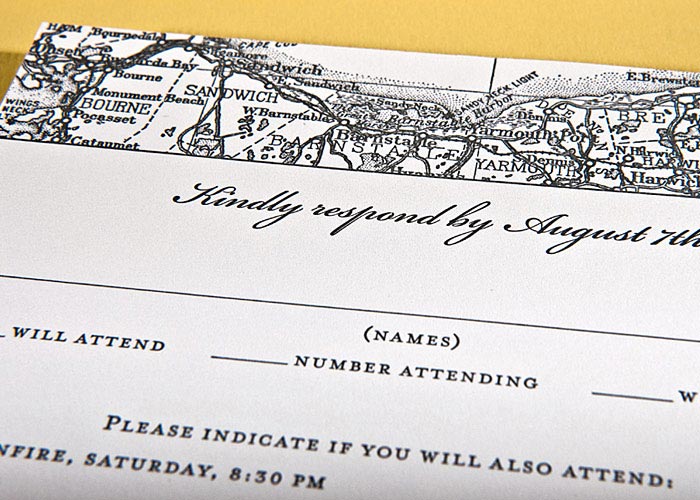 CAPE COD
Bournedale
Sagamore
Sandwich
E. Sandwich
Bourne
Monument Beach
BOURNE
SANDWICH
W. Barnstable
Pocasset
Cataumet
WINGS
NECK
Sandy Neck
SANDY NECK LIGHT
Barnstable Harbor
Barnstable
BARNSTABLE
Yarmouth Port
YARMOUTH
Dennis
Dennis
E. Brewst
BRE
N. Harwich
HARW
Harwich
Kindly respond by August 7th
(NAMES)
WILL ATTEND
NUMBER ATTENDING
W
PLEASE INDICATE IF YOU WILL ALSO ATTEND:
NFIRE, SATURDAY, 8:30 PM